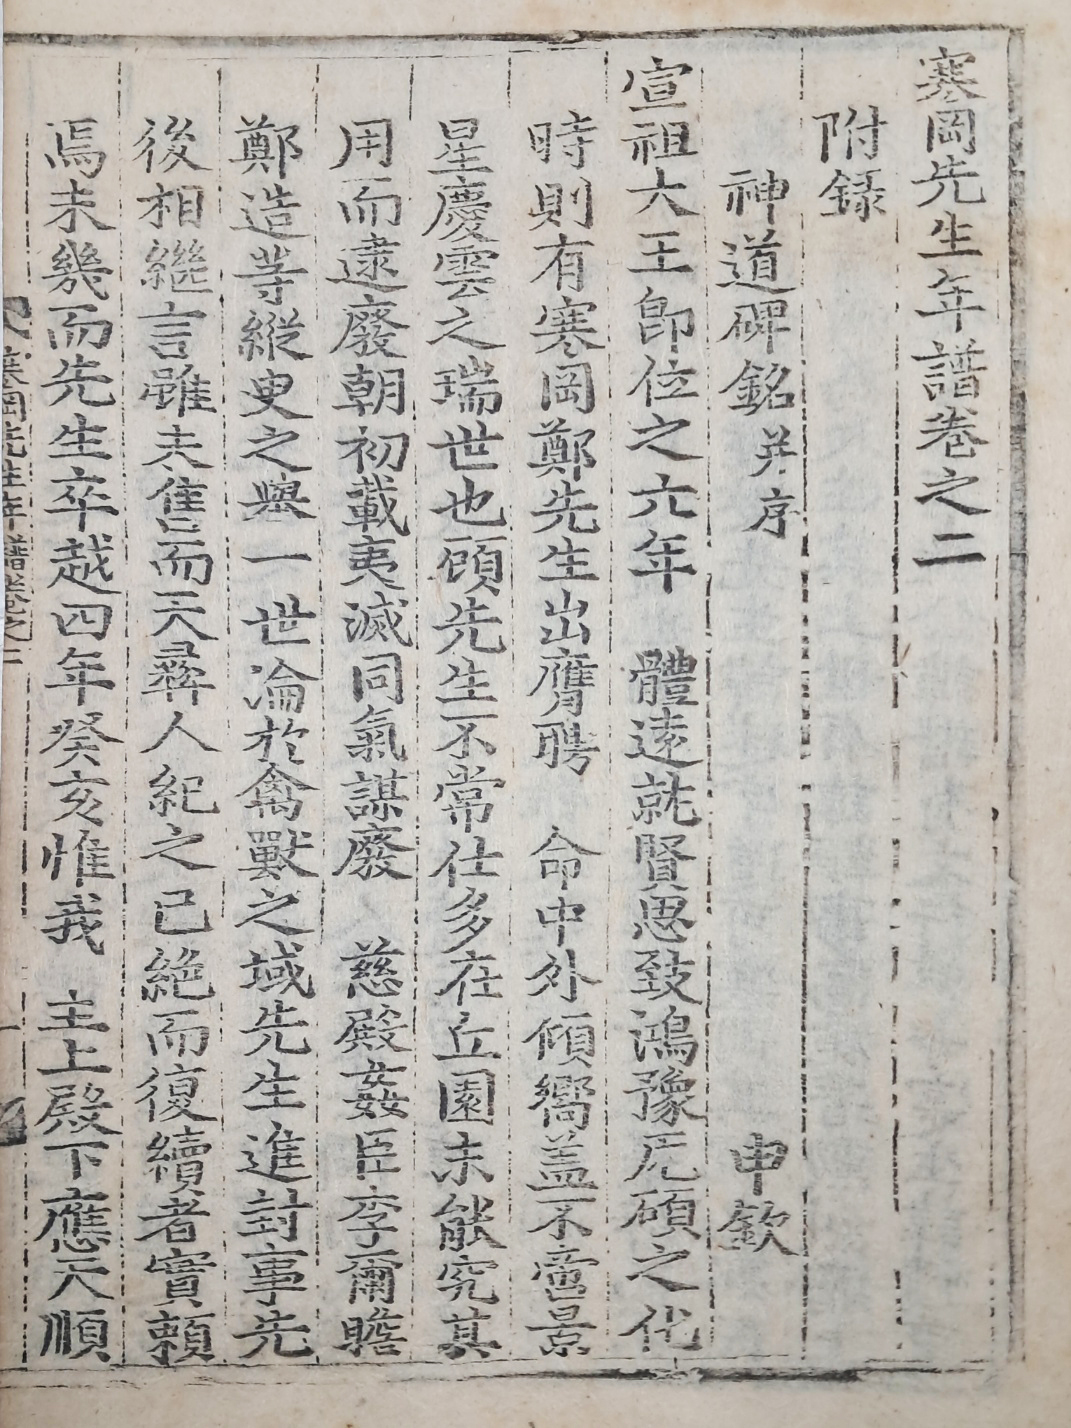 寒岡先生年譜卷之二
附錄
神道碑銘 并序 申欽
宣祖大王卽位之六年 體遠就賢思致鴻豫厖碩之化
時則有寒岡鄭先生出膺聘 命中外傾嚮盖不啻景
星慶雲之瑞世也顧先生不常仕多在丘園未能究其
用而逮廢朝初載夷滅同氣謀廢 慈殿姦臣李爾瞻
鄭造等縱臾之擧一世淪於禽獸之域先生進封事先
後相繼言雖未售而天彛人紀之已絶而復續者實賴
焉未幾而先生卒越四年癸亥惟我 主上殿下應天順
寒岡先生年譜卷之二 一